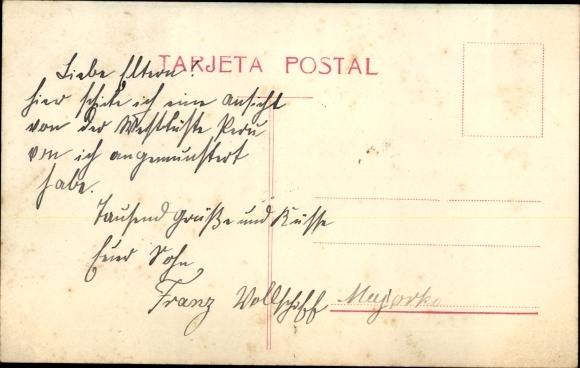 TARJETA POSTAL
Liebe Eltern!
hier schike ich eine Ansicht
von der Westküste Peru
von ich angemunstert
habe.
Tausend Grüße und Küsse
Euer Sohn
Franz Vollschiff Majorka